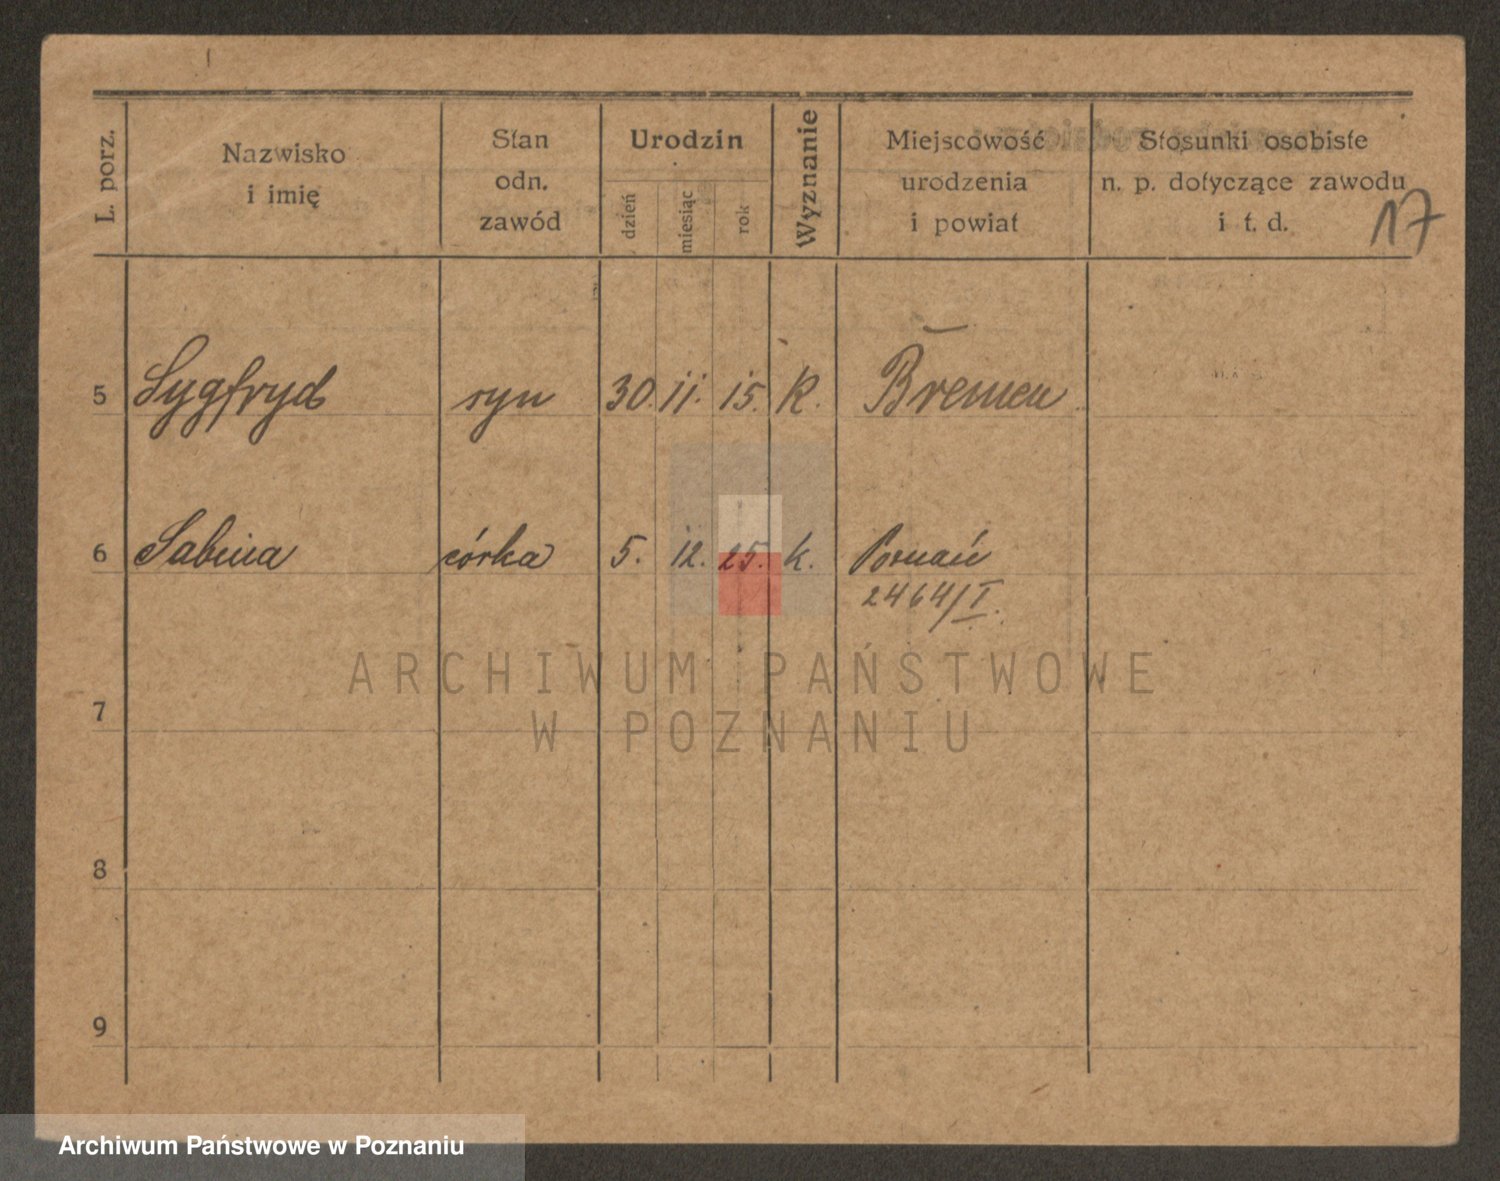 L. porz.
Nazwisko
i imię
Stan
odn.
zawód
Urodzin
dzień
miesiąc
rok
Wyznanie
Miejscowość
urodzenia
i powiat
Stosunki osobiste
n. p. dotyczące zawodu
i t. d.
17
5 Sygfryd syn 30. 11. 15. K. Bremen
6 Sabina córka 5. 12. 25. k. Poznań
2464/I.
7
8
9
ARCHIWUM PAŃSTWOWE
W POZNANIU
Archiwum Państwowe w Poznaniu